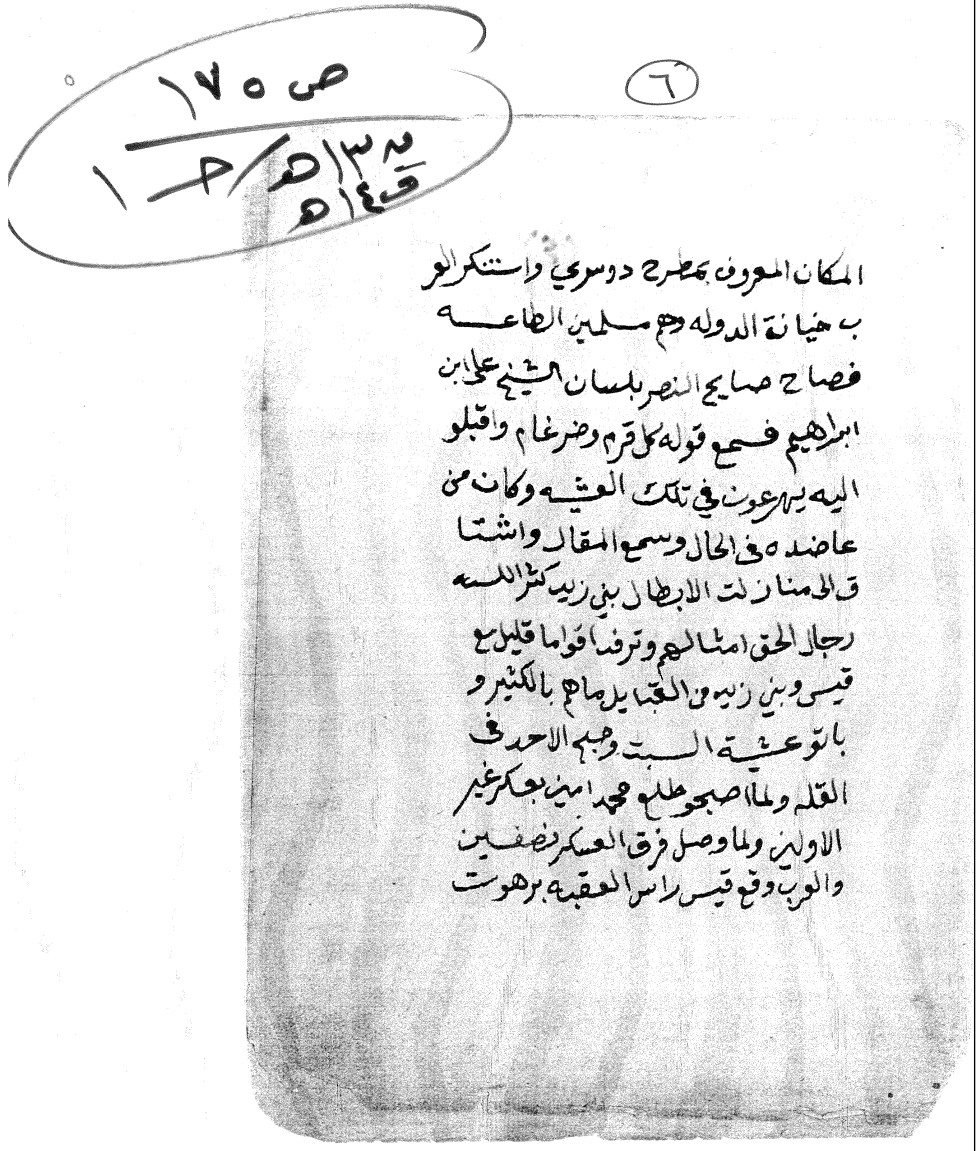 ٦
ص ١٧٥
ق ١٣ هـ / حـ ١
ق ١٤ هـ
المكان المعروف بمطرح دوسري واستنكر العر
ب خيانة الدوله وهم مسلمين الطاعه
فصاح صايح النصر بلسان الشيخ علي ابن
ابراهيم فسمع قوله كل قرم وضرغام واقبلو
اليه يهرعون في تلك العشيه وكان من
عاضده في الحال وسمع المقال واشتا
ق الى منازلت الابطال بني زيد كثر الله
رجال الحق امثالهم وترفد اقواما قليل مع
قيس وبني زيد من القبايل ماهم بالكثير و
باتو عشية السبت وصبح الاحد في
القله ولما اصبحو طلع محمد امين بعسكر غير
الاولين ولما وصل فرق العسكر نصفين
والعرب وقع قيس راس العقبه برهوت